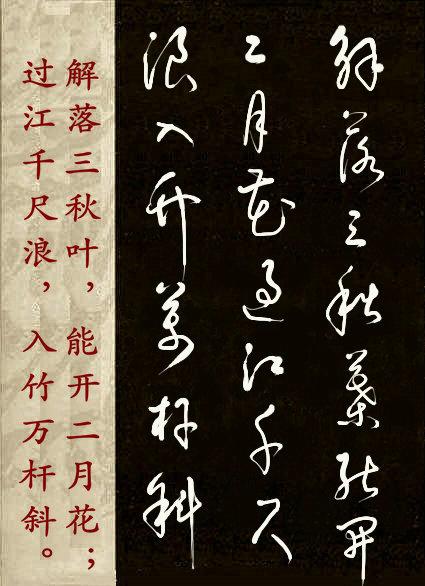 解落三秋葉能開
二月花過江千尺
浪入竹萬杆斜
解落三秋叶，能开二月花；
过江千尺浪，入竹万杆斜。